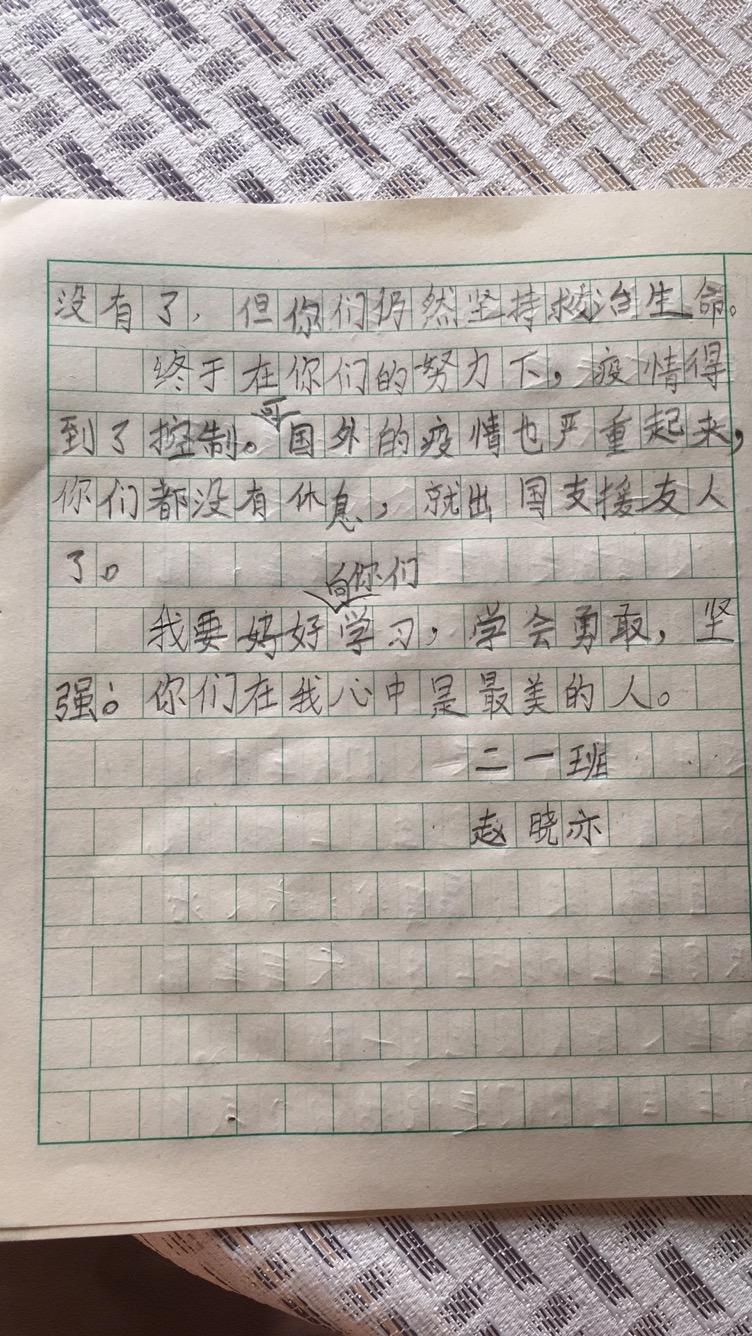 没有了，但你们仍然坚持救治生命。
终于在你们的努力下，疫情得
到了控制。可国外的疫情也严重起来，
你们都没有休息，就出国支援友人
了。
我要好好向你们学习，学会勇敢，坚
强。你们在我心中是最美的人。
二一班
赵晓亦